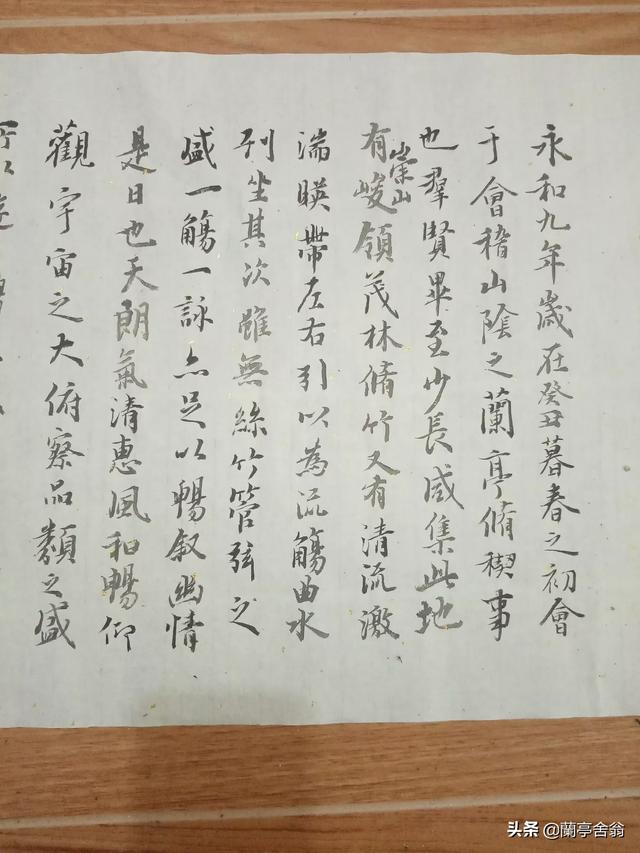 永和九年歲在癸丑暮春之初會
于會稽山陰之蘭亭脩稧事
也羣賢畢至少長咸集此地
有崇山峻領茂林脩竹又有清流激
湍暎帶左右引以為流觴曲水
列坐其次雖無絲竹管弦之
盛一觴一詠亦足以暢叙幽情
是日也天朗氣清惠風和暢仰
觀宇宙之大俯察品類之盛
所以遊
头条@蘭亭舍翁